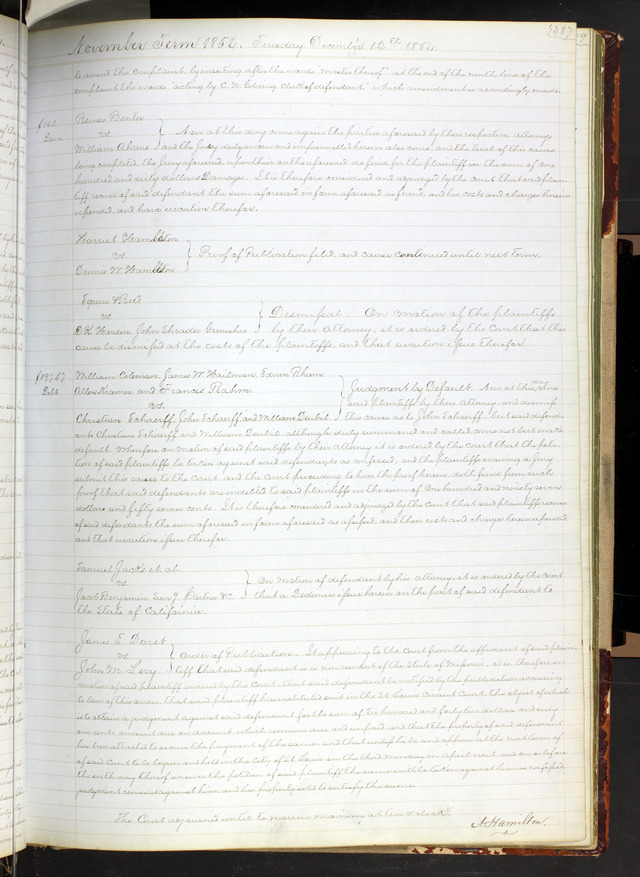 287
November Term 1852. Tuesday December 12th 1852.
to amend the complaint, by inserting after the words "master thereof" at the end of the ninth line of the
complaint the words "acting by C. W. clerk of defendant" which amendment is accordingly made.
$160
Dam.
vs.
William Ahrens
Now at this day come again the parties aforesaid by their respective attorneys
and the Jury duly sworn and impannelled herein also come, and the trial of this cause
being completed the Jury aforesaid upon their oaths aforesaid do find for the plaintiff in the sum of One
hundred and sixty dollars Damage. It is therefore considered and adjudged by the court that said plain-
tiff recover of said defendant the sum aforesaid in form aforesaid as found, and his costs and charges herein
expended, and have execution therefor.
Harriet Hamilton
vs.
Dennis W. Hamilton
Proof of Publication filed, and cause continued until next term.
Squire & Reed
vs.
D. K. Harden, John Shrader Garnishee
Dismissal. On motion of the plaintiffs
by their attorney, it is ordered by the Court that this
cause be dismissed at the costs of the plaintiffs, and that execution issue therefor.
$197.57
Debt
William Coleman, James W. Hailman, Edwin Rham
Allen Kramer and Francis Rahm.
vs.
Christian Schaerff, John Schaerff, and William
Judgment by Default. Now at this day come
said Plaintiffs by their Attorney, and dismiss
this cause as to John Schaerff, but said defend-
ants Christian Schaerff and William although duly summoned and called come not but make
default. Wherefore on motion of said plaintiffs by their attorney it is ordered by the court that the peti-
tion of said plaintiffs be taken against said defendants as confessed, and the plaintiffs waiving a Jury
submit this cause to the Court, and the Court proceeding to hear the proof herein, doth find from such
proof that said defendants are indebted to said plaintiffs in the sum of One hundred and ninety seven
dollars and fifty seven cents. It is therefore considered and adjudged by the Court that said plaintiffs recover
of said defendants the sum aforesaid in form aforesaid as and their costs and charges herein expended
and that execution issue therefor.
Samuel Jacks et al
vs.
Jacob Benjamin & Co.
On motion of defendant by his Attorney, it is ordered by the Court
that a Dedimus issue herein on the part of said defendant to
the State of California.
James E. Darst
vs.
John M. Levy
Order of Publication. It appearing to the Court from the affidavit of said plain-
tiff that said defendant is a non resident of the State of Missouri, it is, therefore on
motion of said plaintiff ordered by the Court, that said defendant be notified by the publication according
to law of this order, that said plaintiff has instituted suit in the St Louis Circuit Court, the object of which
is to obtain a judgment against said defendant for the sum of Six hundred and forty two dollars and sixty
one cents amount due on account which remains due and unpaid, and that the property of said defendant
has been attached to secure the payment of the same, and that unless he be and appear at the next term of
of said Court to be begun and held in the City of St Louis on the third Monday in April next, and on or before
the sixth day thereof answer the petition of said plaintiff the same will be taken against him as confessed
judgment rendered against him and his property sold to satisfy the same.
The Court adjourned until tomorrow morning at ten o'clock.
A Hamilton.